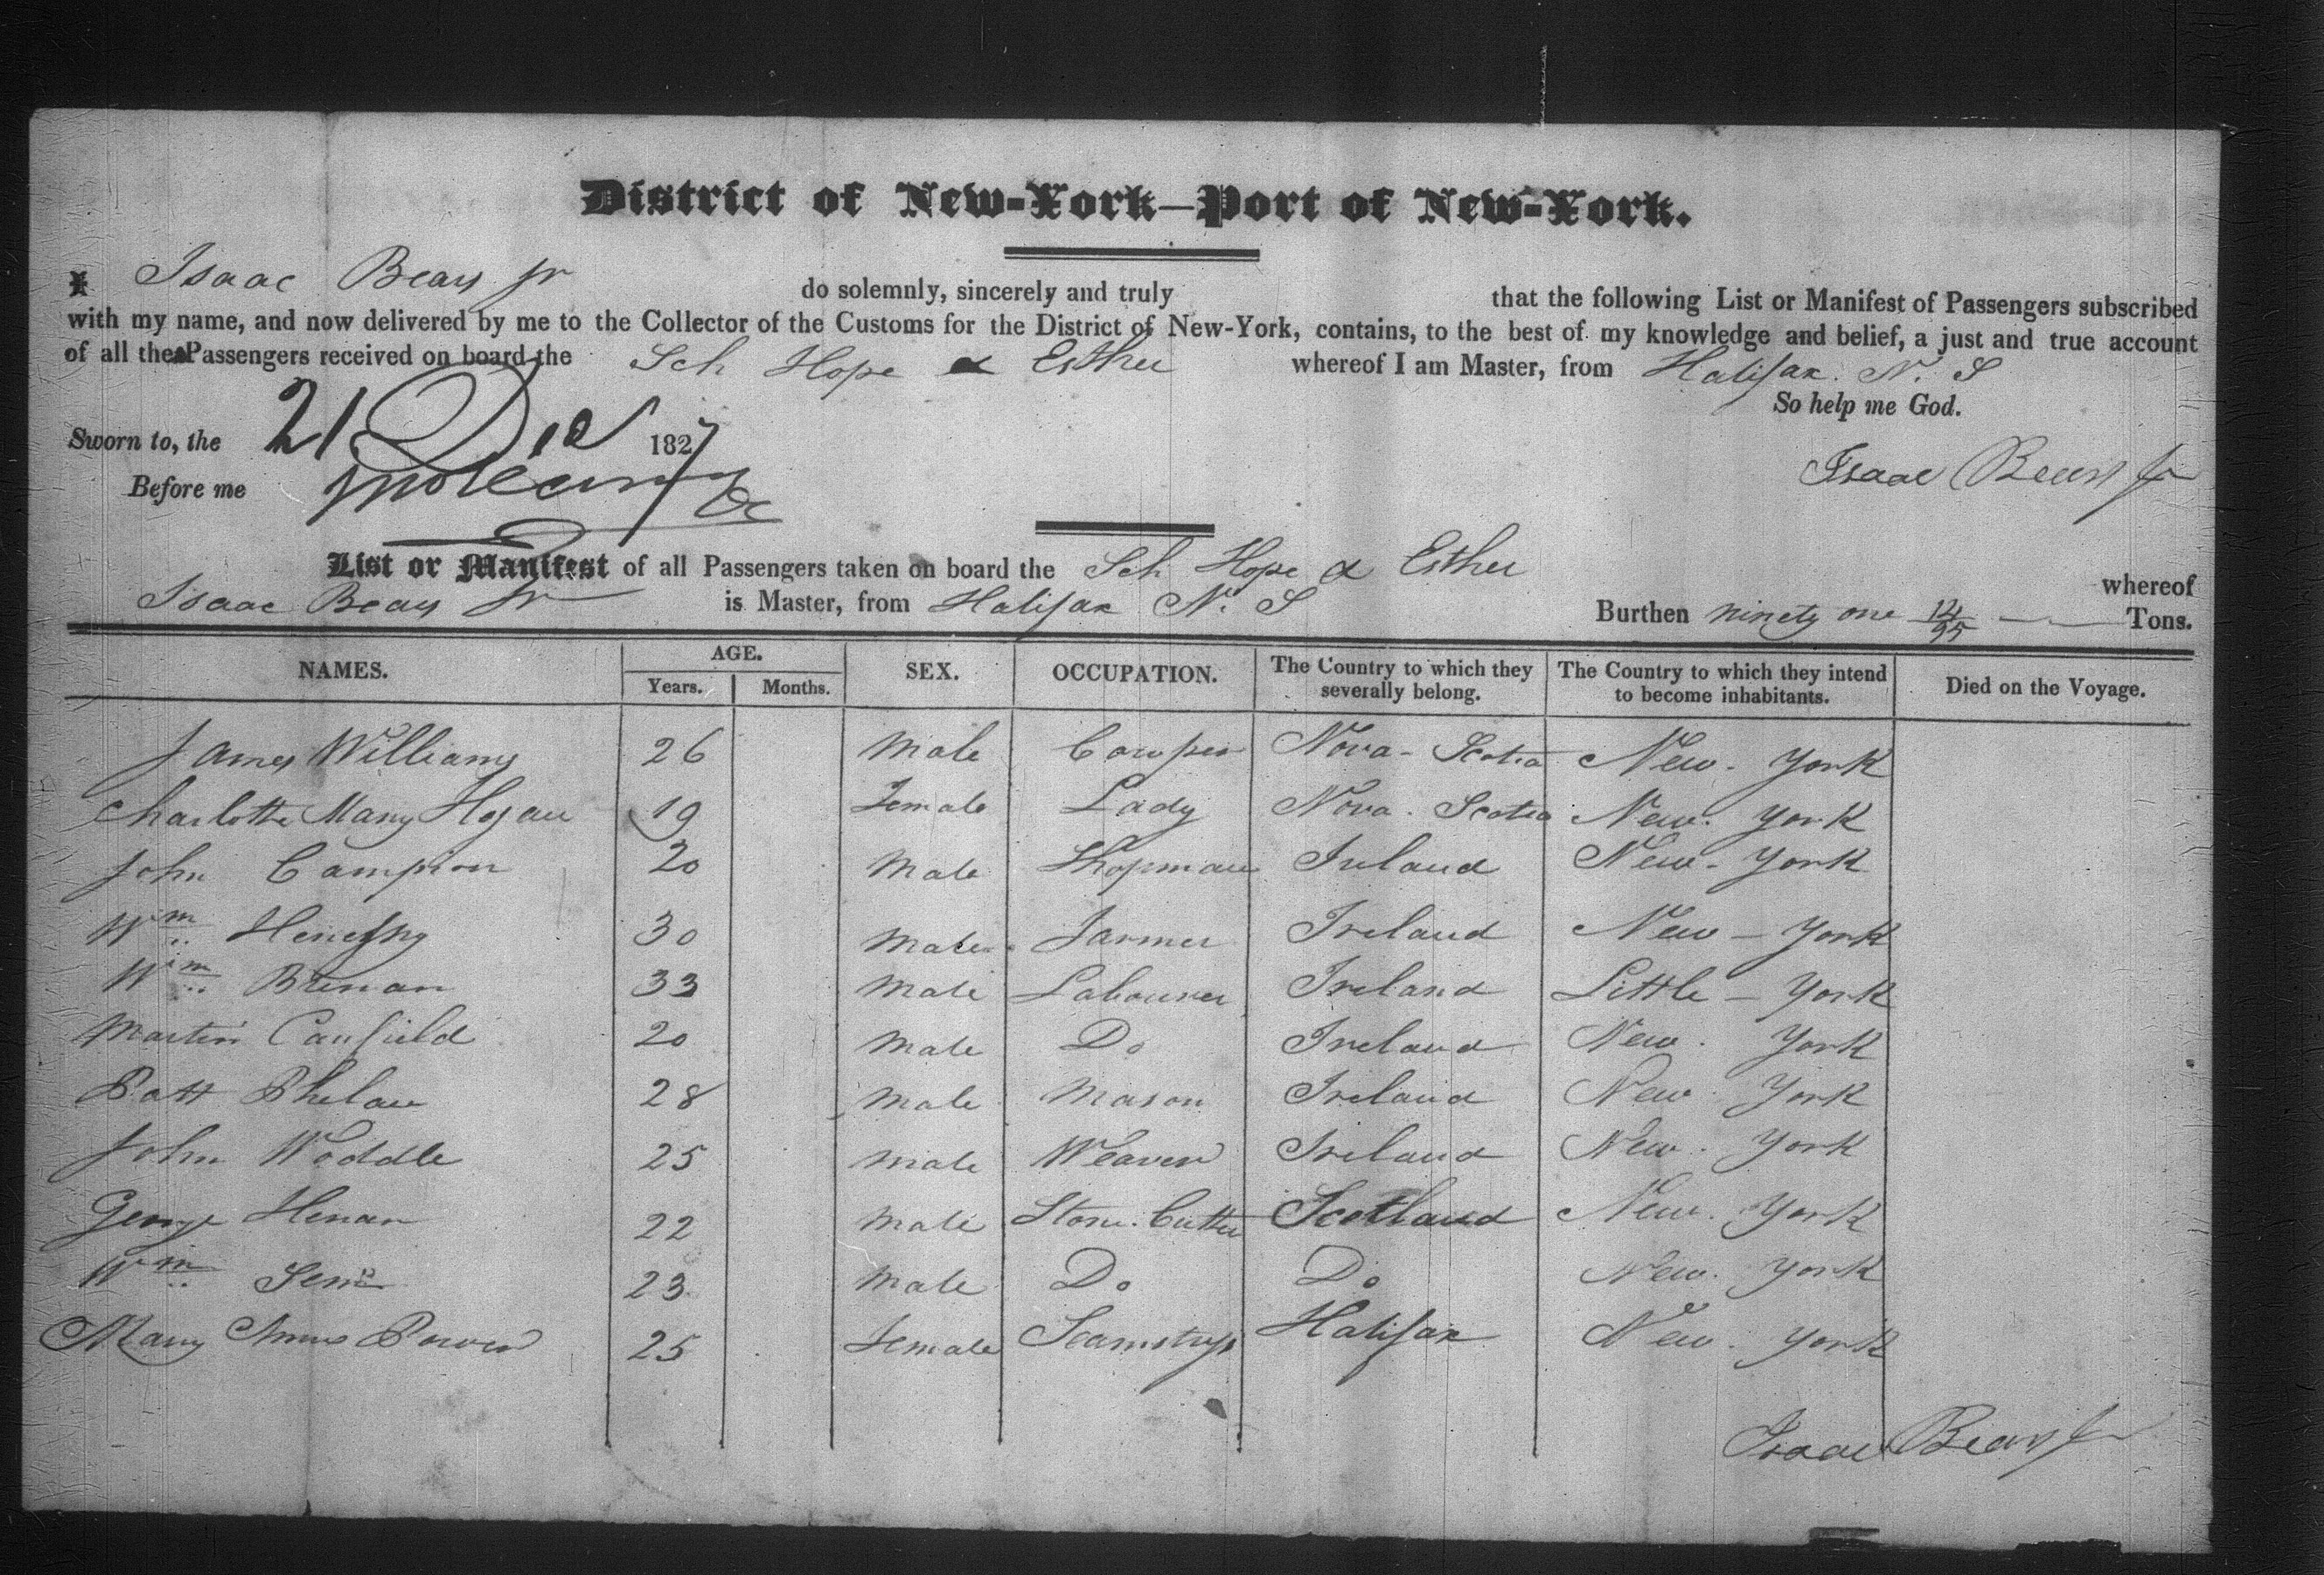 District of New-York—Port of New-York.
I Isaac Bears Jr do solemnly, sincerely and truly that the following List or Manifest of Passengers subscribed
with my name, and now delivered by me to the Collector of the Customs for the District of New-York, contains, to the best of my knowledge and belief, a just and true account
of all the Passengers received on board the Sch Hope & Esther whereof I am Master, from Halifax. N. S
So help me God.
Sworn to, the 21 Dec 1827
Before me
Isaac Bears Jr
List or Manifest of all Passengers taken on board the Sch Hope & Esther whereof
Isaac Bears Jr is Master, from Halifax N. S Burthen ninety one 12/95 Tons.
NAMES. AGE. Years. Months. SEX. OCCUPATION. The Country to which they severally belong. The Country to which they intend to become inhabitants. Died on the Voyage.
James Williams 26 Male Cowper Nova-Scotia New-York
Charlotte Mary Hogan 19 Female Lady Nova. Scotia New. York
John Campion 20 Male Shopman Ireland New-York
Wm Henessy 30 Male Farmer Ireland New-York
Wm Brenan 33 Male Labourer Ireland Little-York
Martin Caufield 20 Male Do Ireland New. York
Patt Phelan 28 Male Mason Ireland New York
John Woddle 25 Male Weaver Ireland New. York
George Henan 22 Male Stone. Cutter Scotland New. York
Wm 23 Male Do Do New. York
Mary Anne Power 25 Female Seamstress Halifax New. York
Isaac Bears Jr